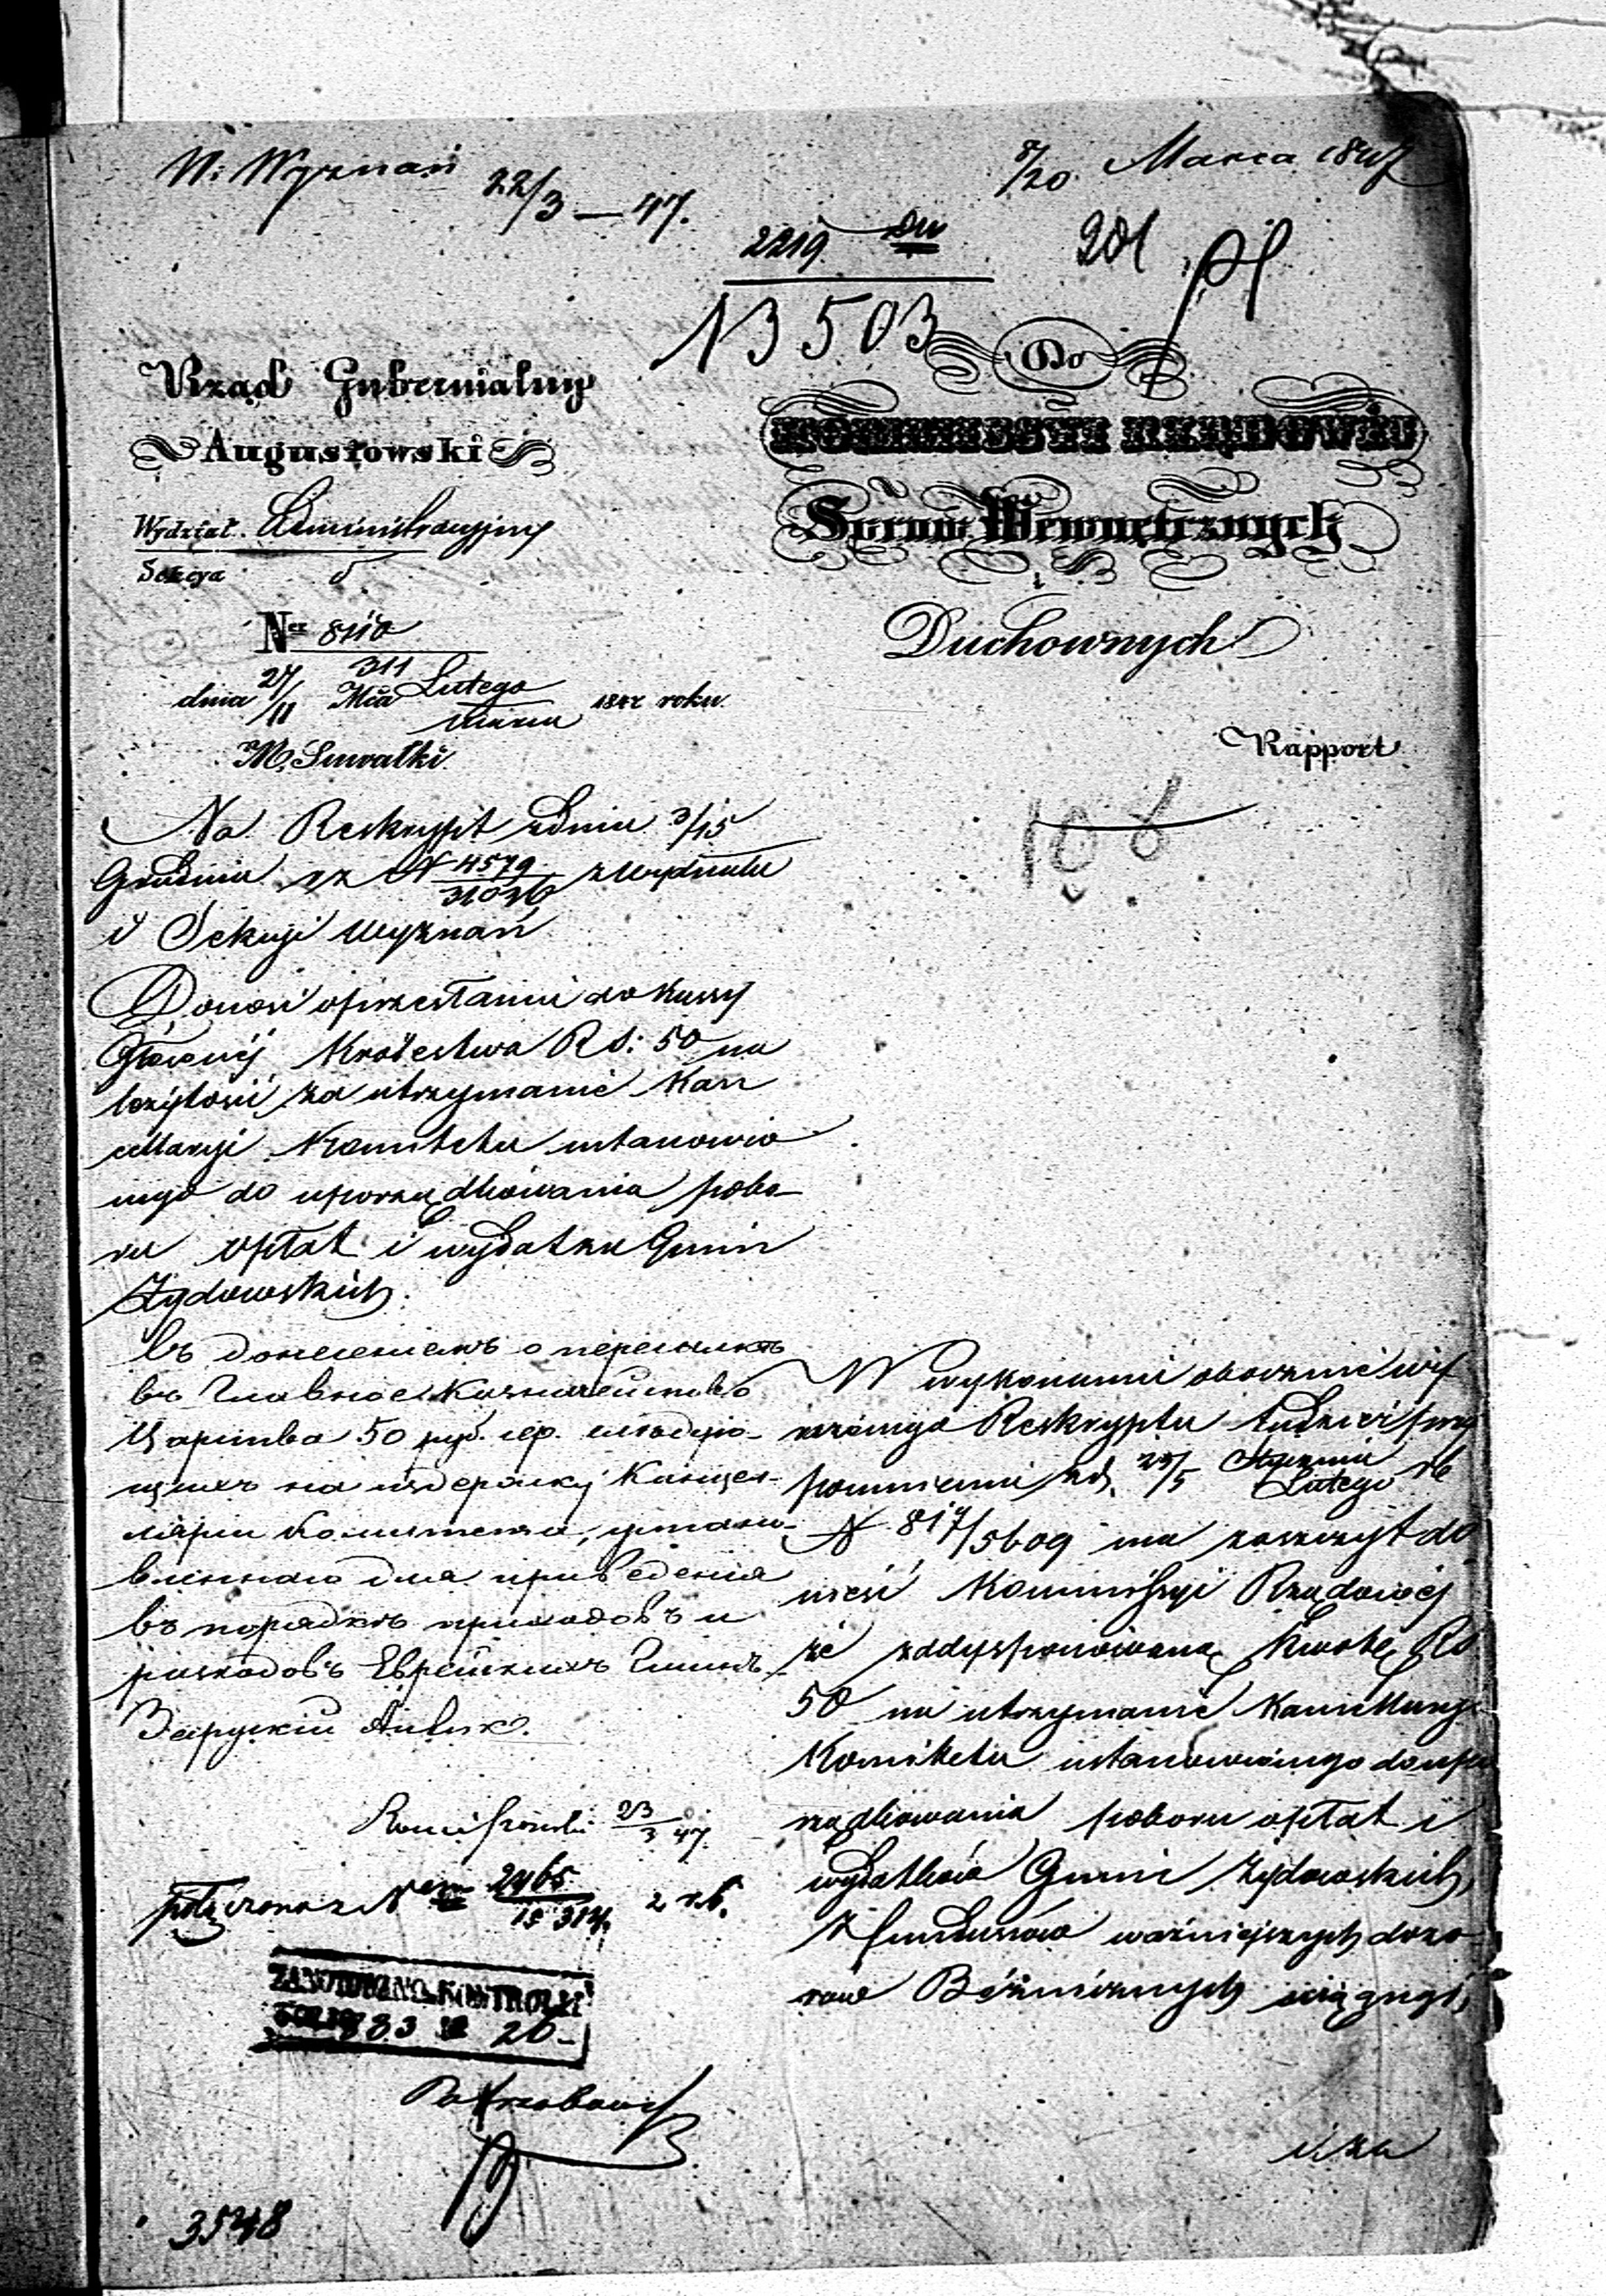 W. Wyznań 22/3 — 47.
8/20 Marca 1847
2219
13503
201
Rząd Gubernialny
Augustowski
Wydział Administracyjny
Sekcya
Ner 8110
311
dnia 27/11 Mca Lutego
Marca 1847 roku
M. Suwałki
Do
KOMMISSYI RZĄDOWÉJ
Spraw Wewnętrznych
i
Duchownych
Rapport
106
Na Reskrypt z dnia 3/15
Grudnia rz N 4579
z Wydziału
i Sekcyi Wyznań
Donosi o przesłaniu do Kassy
Głównéj Królestwa RS: 50 na
leżytości za utrzymanie Kan
cellaryi Komitetu ustanowio
nego do uporządkowania pobo-
ru opłat i wydatku Gmin
Żydowskich.
Съ донесеніемъ о пересылкѣ
въ Главное Казначейство
Царства 50 руб. сер. слѣдую-
щихъ на издержку Канцел-
ляріи Комитета, устано-
вленнаго для приведенія
въ порядокъ приходовъ и
расходовъ Еврейскихъ Гминъ.
23/3 47.
połączono z Nem 2465
15314
z r.b.
ZANOTOWANO w KONTROLLI
FOLIO 883 20-
3548
W wykonaniu obocznie wy
rażonego Reskryptu tudzież przy
pomnienia z d. 25/5 Stycznia
Lutego rb
N 817/5609 ma zaszczyt do
nieść Kommissyi Rządowéj
że zadysponowaną kwotę RS
50 na utrzymanie Kancellaryi
Komitetu ustanowionego do upo
rządkowania poboru opłat i
wydatków Gmin Żydowskich,
z funduszów ważniejszych dozo
rów Bóżniczych ściągnął,
i za